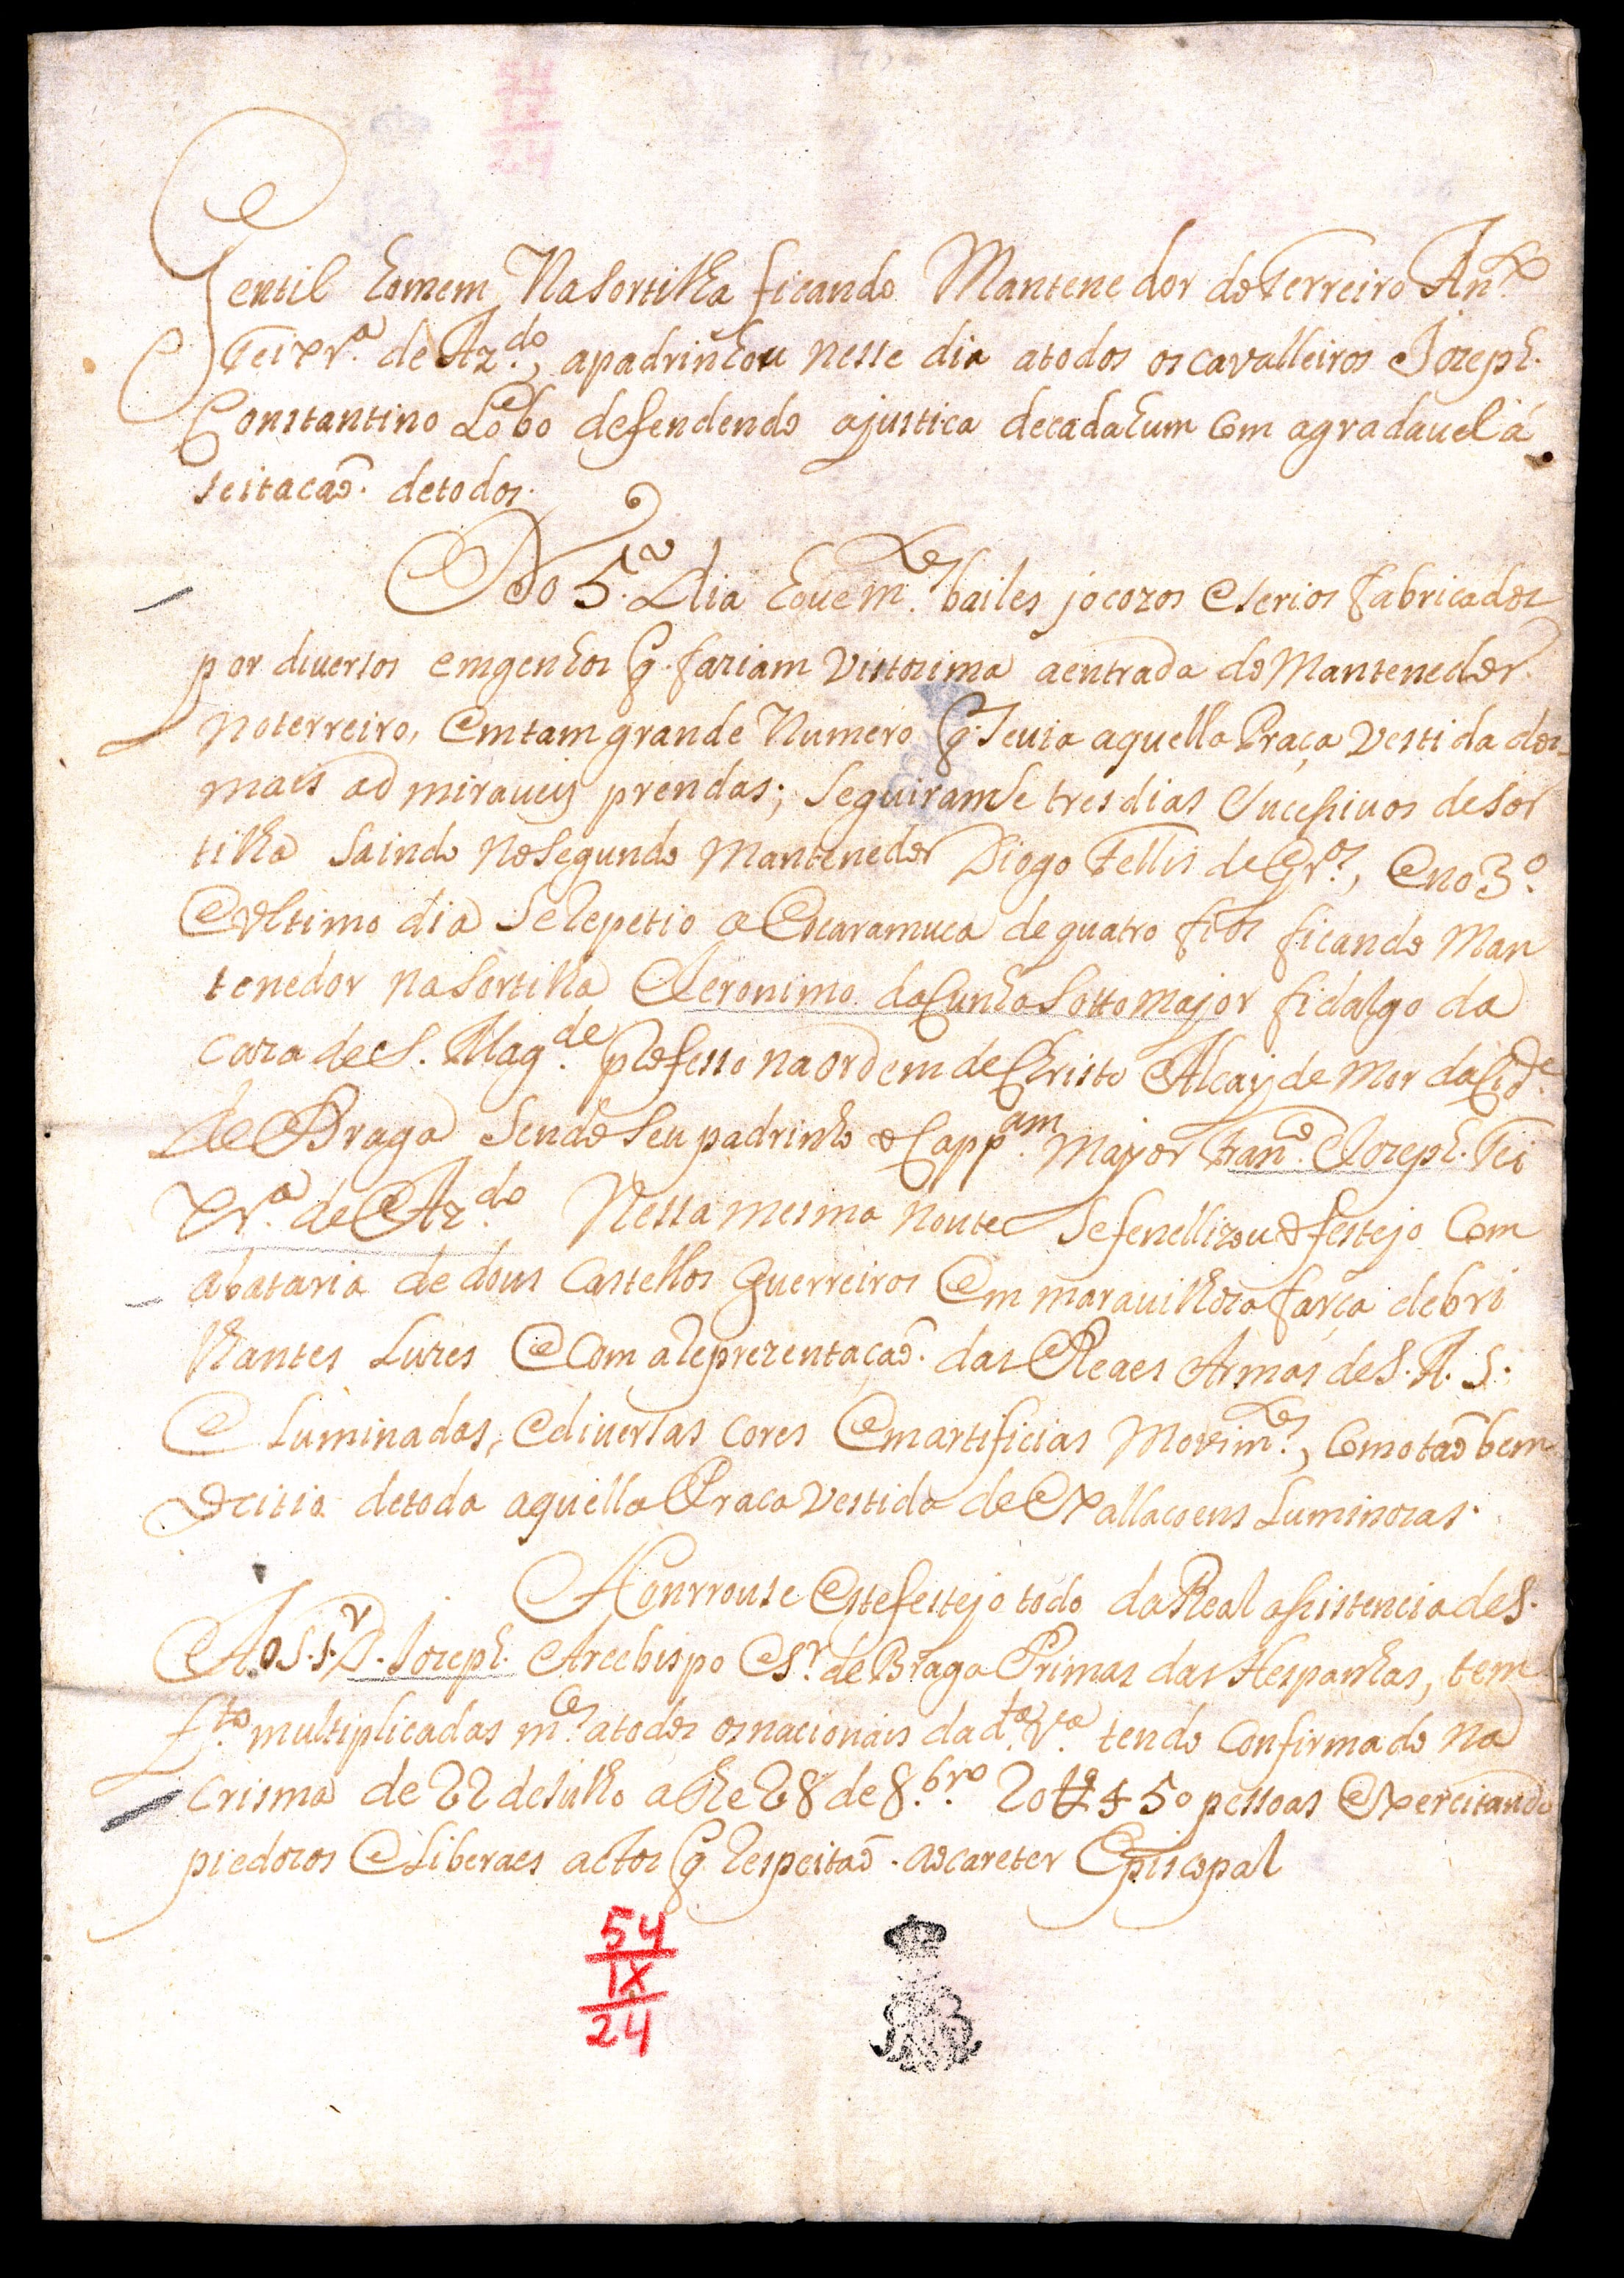 Gentil homem Na Sortilha ficando Mantenedor do Terreiro An.to
Teixr.a de Az.do, apadrinhou nesse dia a todos os cavalleiros Jozeph.
Constantino Lobo defendendo a justica de cada hum Com agradavel á
seitacaõ. de todos.
No 5.to dia houve m.tos bailes jocozos e serios fabricados
por diversos emgenhos q. faziam Vistozima a entrada do Mantenedor.
no terreiro, em tam grande Numero q. Se via aquella Praça Vestida dos
mais admiraveis prendas; Seguiram Se tres dias Sucessivos de Sor
tilha Saindo No Segundo Mantenedor Diogo Telles de , e no 3.o
e Vltimo dia Se Repetio a Escaramuca de quatro fios ficando Man
tenedor na Sortilha Jeronimo da Cunha Sotto Major fidalgo da
caza de S. Mag.de professo na ordem de Christo Alcayde Mor da Cid.e
de Braga Sendo Seu padrinho o Capp.am Mayor Fran.co Jozeph. Tei
xr.a de Az.do Nessa mesma noute Se fenellizou o festejo Com
a bataria de dous Castellos Guerreiros Em maravilhoza farça de bri
lhantes Luzes e Com a Reprezentaçaõ. das Reaes Armas de S. A. S.
e Luminadas, e diversas cores Em artificias Movim.tos, Como taõ bem
o citio de toda aquella Praca Vestida de Exallacoens Luminozas.
Honrrouse Este festejo todo da Real assistencia de S.
A. o S. S.r D. Jozeph. Arcebispo e S.r de Braga Primaz das Hespanhas, tem
f.to multiplicadas m.ces a todos os nacionais da d.ta V.a tendo Confirmado na
Crisma de 22 de Julho a the 28 de 8.bro 20 450 pessoas Exercitando
piedozos e Liberaes actos q. Respeitaõ. ao careter Episcopal
54
IX
24